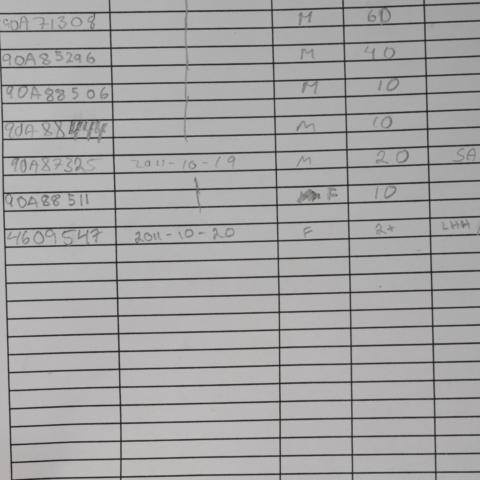 90A71308 M 60
90A85296 M 40
90A88506 M 10
90A88 M 10
90A87325 2011-10-19 M 20 SA
90A88511 F 10
4609547 2011-10-20 F 2+ LHH